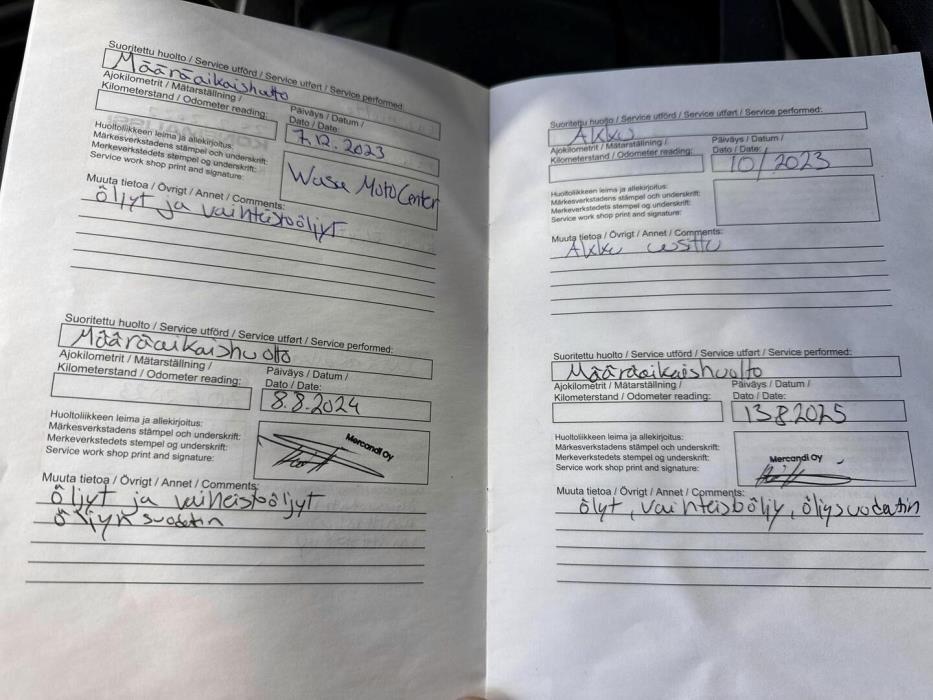 Suoritettu huolto / Service utförd / Service utført / Service performed:
Määräaikaishuolto
Ajokilometrit / Mätarställning /
Kilometerstand / Odometer reading:
Päiväys / Datum /
Dato / Date:
7.12.2023
Huoltoliikkeen leima ja allekirjoitus:
Märkesverkstadens stämpel och underskrift:
Merkeverkstedets stempel og underskrift:
Service work shop print and signature:
Wasa MotoCenter
Muuta tietoa / Övrigt / Annet / Comments:
öljyt ja vaihteistoöljyt
Suoritettu huolto / Service utförd / Service utført / Service performed:
Määräaikaishuolto
Ajokilometrit / Mätarställning /
Kilometerstand / Odometer reading:
Päiväys / Datum /
Dato / Date:
8.8.2024
Huoltoliikkeen leima ja allekirjoitus:
Märkesverkstadens stämpel och underskrift:
Merkeverkstedets stempel og underskrift:
Service work shop print and signature:
Mercandi Oy
Muuta tietoa / Övrigt / Annet / Comments:
öljyt ja vaiheistoöljyt
öljyn suodatin
Suoritettu huolto / Service utförd / Service utført / Service performed:
AKKU
Ajokilometrit / Mätarställning /
Kilometerstand / Odometer reading:
Päiväys / Datum /
Dato / Date:
10/.2023
Huoltoliikkeen leima ja allekirjoitus:
Märkesverkstadens stämpel och underskrift:
Merkeverkstedets stempel og underskrift:
Service work shop print and signature:
Muuta tietoa / Övrigt / Annet / Comments:
Akku
Suoritettu huolto / Service utförd / Service utført / Service performed:
Määräaikaishuolto
Ajokilometrit / Mätarställning /
Kilometerstand / Odometer reading:
Päiväys / Datum /
Dato / Date:
13.8.2025
Huoltoliikkeen leima ja allekirjoitus:
Märkesverkstadens stämpel och underskrift:
Merkeverkstedets stempel og underskrift:
Service work shop print and signature:
Mercandi Oy
Muuta tietoa / Övrigt / Annet / Comments:
ölyt, vaihteistoöljy, öljysuodatin